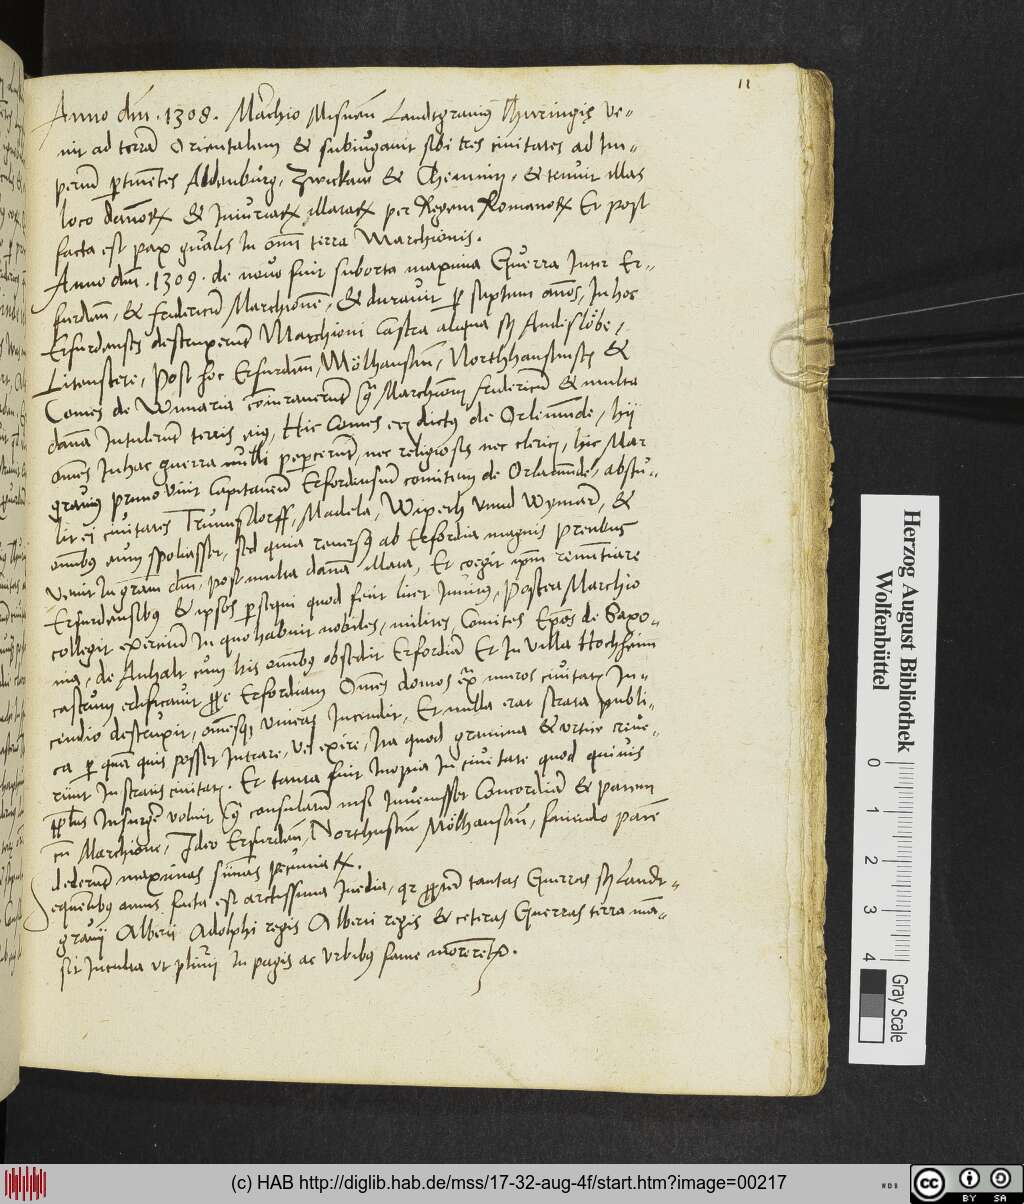 11
Anno dni. 1308. Marchio Misnen Landtgravius Thuringie ve-
nit ad terra Orientalem & subiugavit sibi tres civitates ad Im-
perium ptinetes Aldenburg, Zwickaw & Cheminitz, & tenuit illas
loco & Iniuriar illatar per Regem Romanor Et post
facta est pax gnalis in omi terra Marchionis.
Anno dni. 1309. de novo fuit suborta maxima Guerra Inter Er-
furden, & fridericu Marchione, & duravit p septem anos, In hoc
Erfurdenses destruxerunt Marchioni Castra aliqua Andeslöbe,
Post hoc Erfurden, Mölhausen, Northhusenses &
Comes de Wimaria coniuraverunt Marchione fridericu & multa
dana Intulerunt terris eius, Hic Comes dictus de Orlemunde, hii
omes In hac guerra nulli pepercerunt, nec religiosis nec clericis, hic Mar
gravius primo vicit Capitaneum Erfordensium comitem de Orlamunde, abstu-
lit ei civitates Madela, Wiperh unnd Wymar, &
omnibus eum spoliasset, sed quia reversus ab Erfordia magnis precibus
venit In gram dni, post multa dana illata, Et coegit ipm renuntiare
Erfurdensibus & ipsos psequi quod fecit licet Invitus, Postea Marchio
collegit exercitum In quo habuit nobiles, milites, Comites Epos de Saxo-
nia, de Anhalt cum his omnibus obsedit Erfordiam Et In villa Hochheim
castrum edificavit ppe Erfordiam Omes domos ex muros civitatis In-
cendio destruxit, omesq vineas Incendit, Et nulla erat strata publi-
ca p quam quis posset Intrare, vel exire, Ita quod gramina & urtice creve-
runt In stratis civitatis. Et tanta fuit Inopia In civitate quod quivis
pplus Insurgere voluit consulatum nisi Invenisset Concordiam & pacem
cu Marchione, Ideo Erfurden, Northusen Mölhausen, faciendo pace
dederunt maximas sumas pecuniar.
Sequentibus annis facta est arctissima Inedia, qr ppter tantas Guerras Landt-
gravii Alberti Adolphi regis Alberti regis & ceteras Guerras terra man-
sit Inculta ut plurimi In pagis ac urbibus fame morerentur.
Herzog August Bibliothek
Wolfenbüttel
0 1 2 3 4
Gray Scale
(c) HAB http://diglib.hab.de/mss/17-32-aug-4f/start.htm?image=00217
WDB
cc BY SA